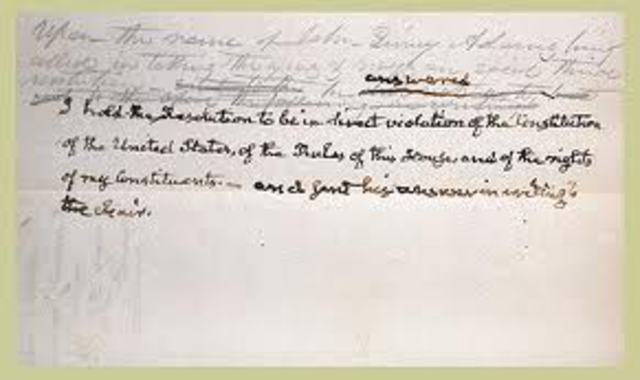 Upon the name of John Quincy Adams being
called in taking the yeas
answered
I hold the Resolution to be in direct violation of the Constitution
of the United States, of the Rules of this House, and of the rights
of my Constituents. — and sent his answer in writing to
the Chair.